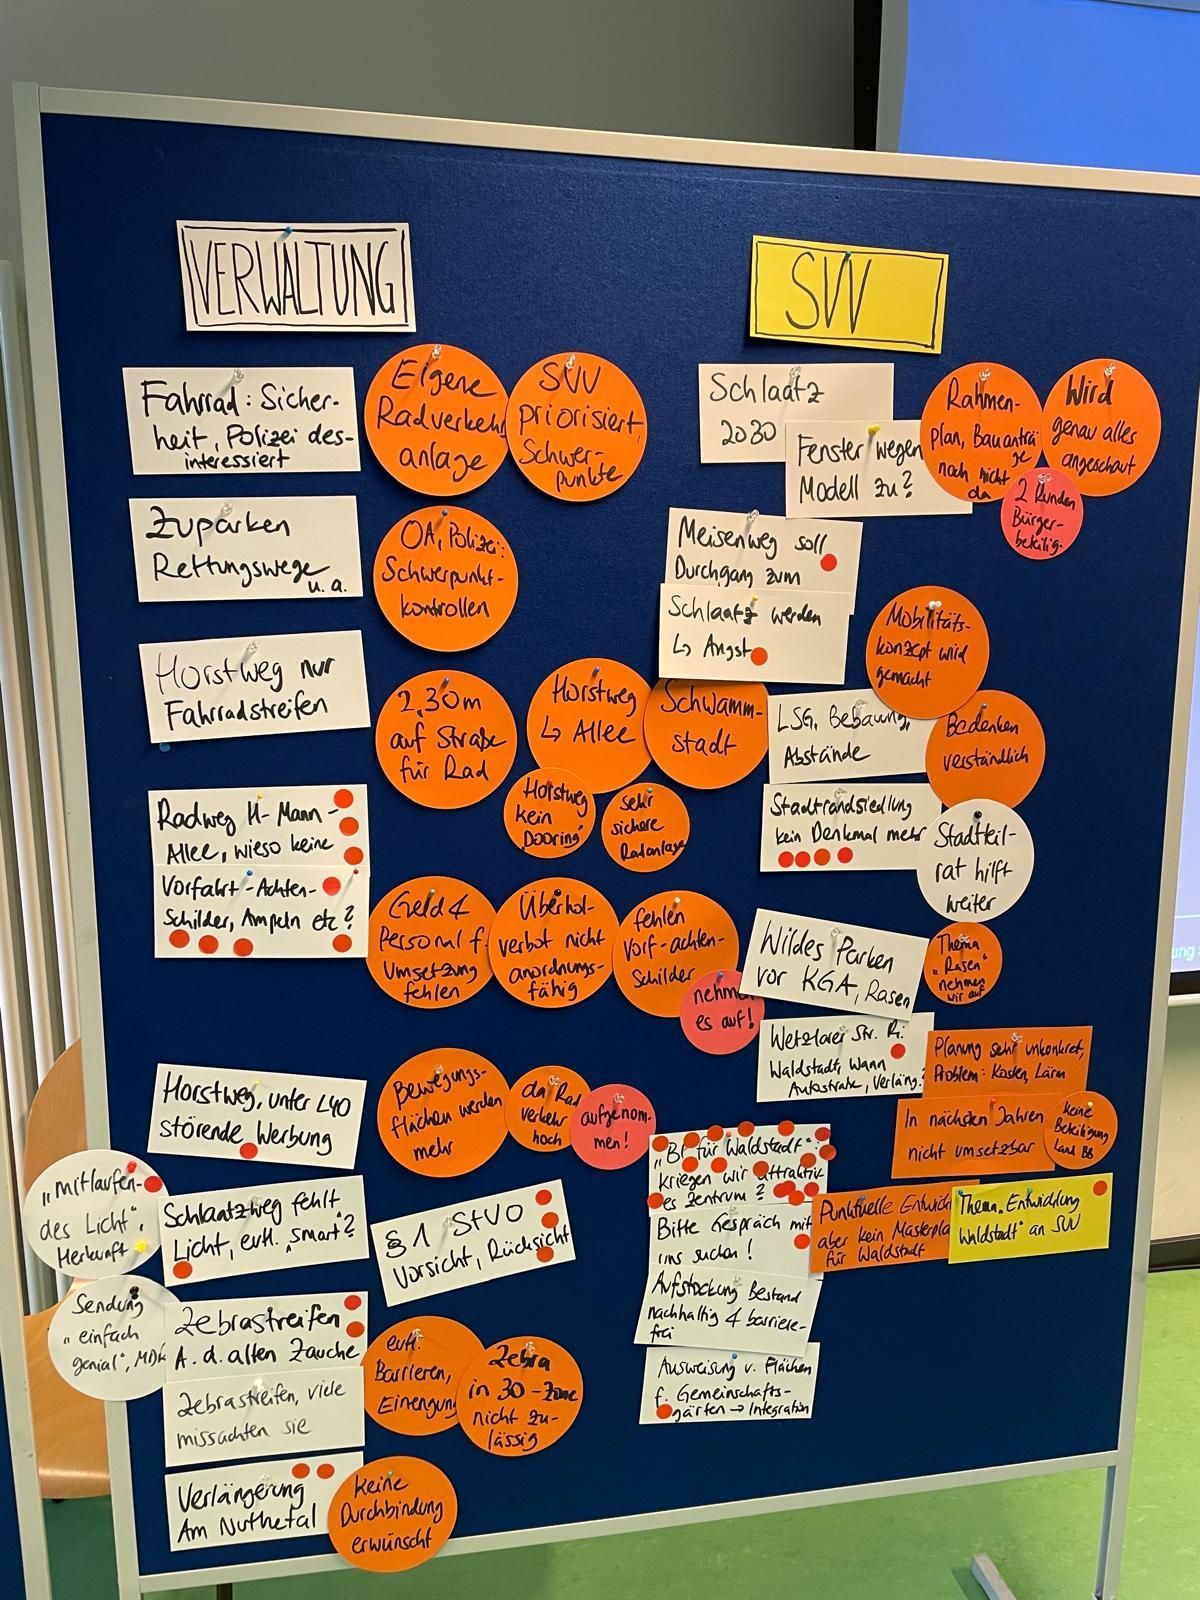 VERWALTUNG
Fahrrad: Sicher-
heit, Polizei des-
interessiert
Eigene
Radverkehrs
anlage
SVV
priorisiert,
Schwer-
punkte
Zuparken
Rettungswege
u. a.
OA, Polizei:
Schwerpunkt-
kontrollen
Horstweg nur
Fahrradstreifen
2,30m
auf Straße
für Rad
Horstweg
↳ Allee
Schwamm-
stadt
Horstweg
kein
"Dooring"
sehr
sichere
Radanlage
Radweg H-Mann-
Allee, wieso keine
Vorfahrt-Achten-
Schilder, Ampeln etc?
Geld &
Personal f.
Umsetzung
fehlen
Überhol-
verbot nicht
anordnungs-
fähig
fehlen
Vorf-achten-
Schilder
nehmen
es auf!
Horstweg, unter L40
störende Werbung
Bewegungs-
flächen werden
mehr
da Rad
verkehr
hoch
aufgenom-
men!
"mitlaufen-
des Licht",
Herkunft
Schlaatzweg fehlt
Licht, evtl. "smart"?
§1 StVO
Vorsicht, Rücksicht
Sendung
"einfach
genial", MDR
Zebrastreifen
A. d. alten Zauche
Zebrastreifen, viele
missachten sie
evtl.
Barrieren,
Einengung
Zebra
in 30-Zone
nicht zu-
lässig
Verlängerung
Am Nuthetal
keine
Durchbindung
erwünscht
SVV
Schlaatz
2030
Fenster wegen
Modell zu?
Rahmen-
plan, Bauanträ
ge
noch nicht
da
Wird
genau alles
angeschaut
2 Runden
Bürger-
beteilig.
Meisenweg soll
Durchgang zum
Schlaatz werden
↳ Angst
Mobilitäts-
konzept wird
gemacht
LSG, Bebauung,
Abstände
Bedenken
verständlich
Stadtrandsiedlung
kein Denkmal mehr
Stadtteil-
rat hilft
weiter
Wildes Parken
vor KGA, Rasen
Thema
"Rasen"
nehmen
wir auf
Wetzlarer Str. Ri.
Waldstadt, Wann
Autostraße, Verläng.?
Planung sehr unkonkret,
Problem: Kosten, Lärm
In nächsten Jahren
nicht umsetzbar
keine
Beteiligung
Land BB
"BI für Waldstadt":
kriegen wir attraktiv-
es Zentrum?
Bitte Gespräch mit
uns suchen!
Punktuelle Entwick
aber kein Masterpla
für Waldstadt
Thema "Entwicklung
Waldstadt" an SVV
Aufstockung Bestand
nachhaltig & barriere-
frei
Ausweisung v. Flächen
f. Gemeinschafts-
gärten → Integration